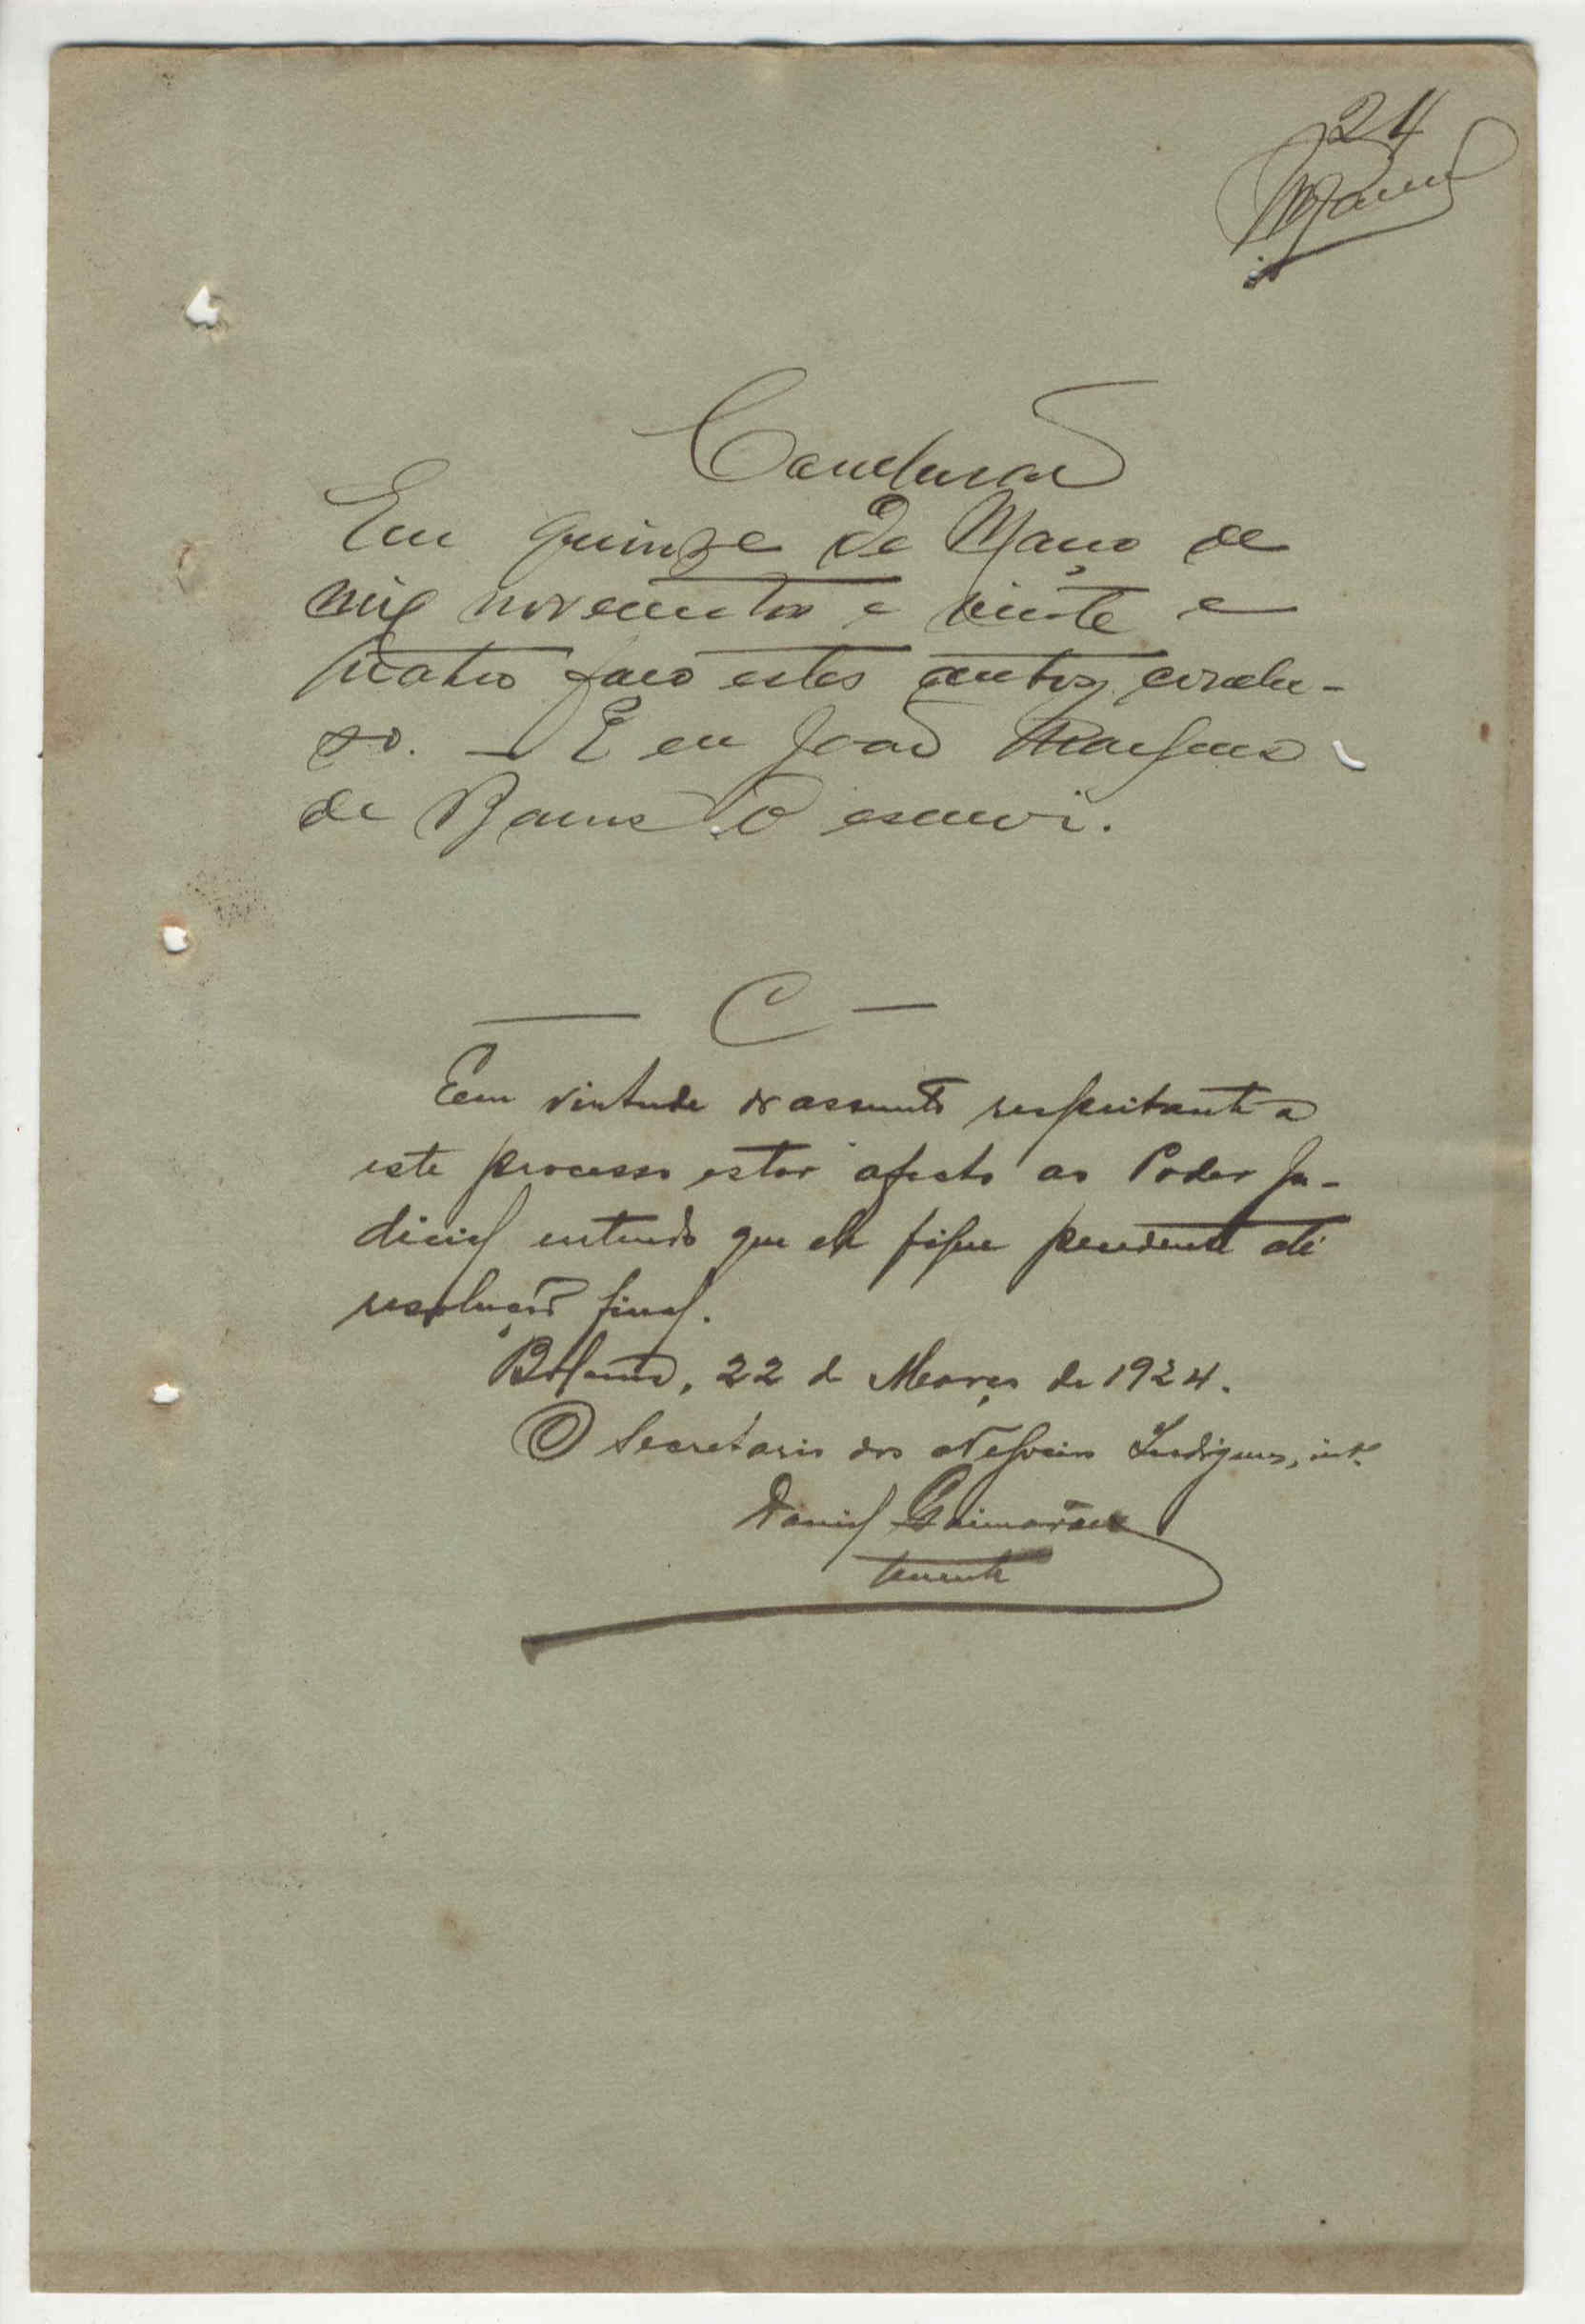 24
Conclusão
Em quinze de Março de
mil novecentos e vinte e
quatro faço estes autos conclu-
so. — E eu João Marques
de Barros o escrevi.
— C —
Em virtude do assunto respeitante a
este processo estar afecto ao Poder Ju-
dicial entendo que ele fique pendente até
resolução final.
Bolama, 22 de Março de 1924.
O Secretario dos Negocios Indigenas, intº
Daniel Guimarães
tenente